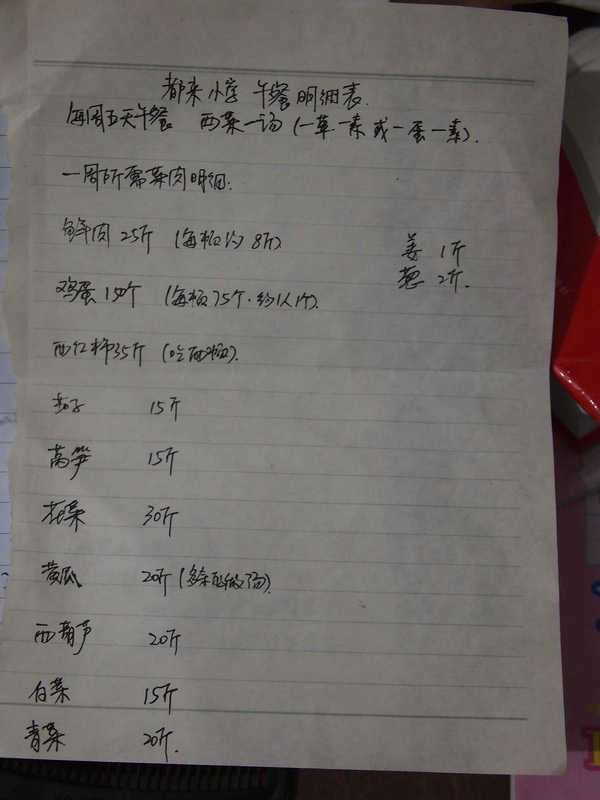 都来小学 午餐明细表.
每周五天午餐 两菜一汤(一荤一素或一蛋一素).
一周所需菜肉明细:
鲜肉 25斤 (每顿约 8斤)
姜 1斤
葱 2斤.
鸡蛋 150个 (每顿75个.约1人1个).
西红柿35斤 (吃两顿).
茄子 15斤
莴笋 15斤
花菜 30斤
黄瓜 20斤(多余的做汤).
西葫芦 20斤
白菜 15斤
青菜 20斤.